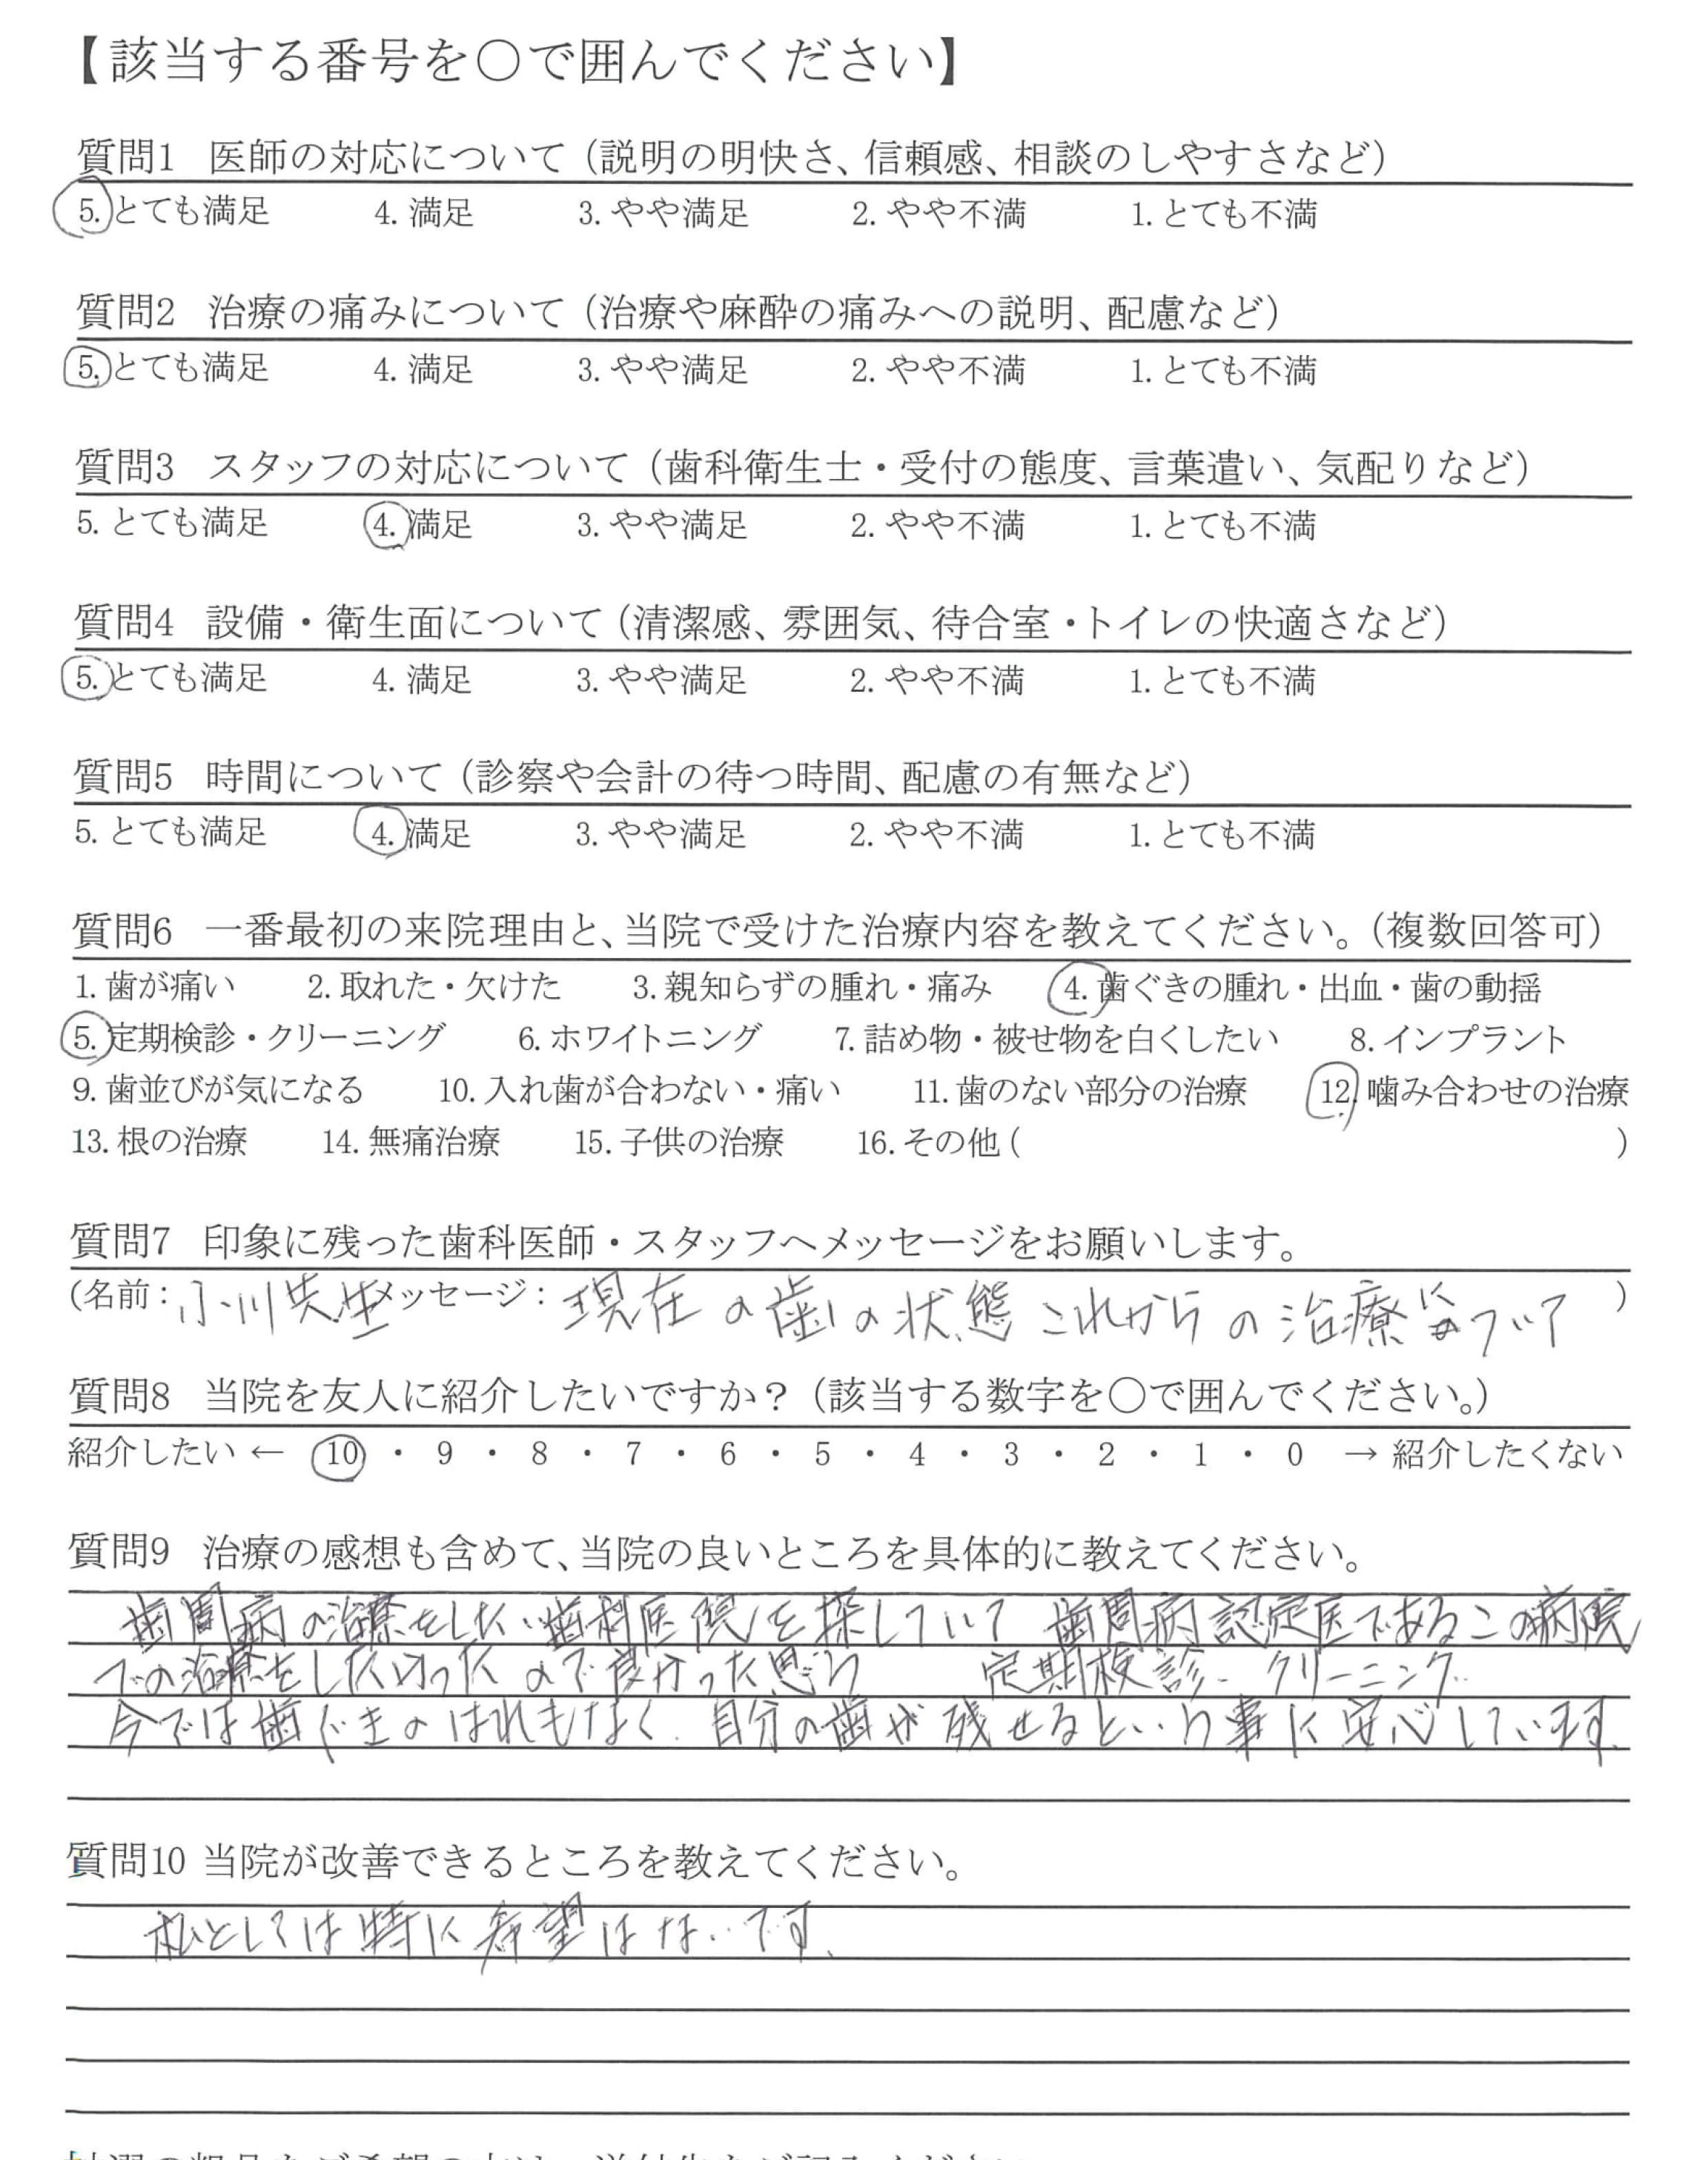 【該当する番号を○で囲んでください】
質問1 医師の対応について（説明の明快さ、信頼感、相談のしやすさなど）
5. とても満足 4. 満足 3. やや満足 2. やや不満 1. とても不満
質問2 治療の痛みについて（治療や麻酔の痛みへの説明、配慮など）
5. とても満足 4. 満足 3. やや満足 2. やや不満 1. とても不満
質問3 スタッフの対応について（歯科衛生士・受付の態度、言葉遣い、気配りなど）
5. とても満足 4. 満足 3. やや満足 2. やや不満 1. とても不満
質問4 設備・衛生面について（清潔感、雰囲気、待合室・トイレの快適さなど）
5. とても満足 4. 満足 3. やや満足 2. やや不満 1. とても不満
質問5 時間について（診察や会計の待つ時間、配慮の有無など）
5. とても満足 4. 満足 3. やや満足 2. やや不満 1. とても不満
質問6 一番最初の来院理由と、当院で受けた治療内容を教えてください。（複数回答可）
1. 歯が痛い 2. 取れた・欠けた 3. 親知らずの腫れ・痛み 4. 歯ぐきの腫れ・出血・歯の動揺
5. 定期検診・クリーニング 6. ホワイトニング 7. 詰め物・被せ物を白くしたい 8. インプラント
9. 歯並びが気になる 10. 入れ歯が合わない・痛い 11. 歯のない部分の治療 12. 噛み合わせの治療
13. 根の治療 14. 無痛治療 15. 子供の治療 16. その他（ ）
質問7 印象に残った歯科医師・スタッフへメッセージをお願いします。
（名前：小川先生 メッセージ：現在の歯の状態これからの治療について ）
質問8 当院を友人に紹介したいですか？（該当する数字を○で囲んでください。）
紹介したい ← 10 ・ 9 ・ 8 ・ 7 ・ 6 ・ 5 ・ 4 ・ 3 ・ 2 ・ 1 ・ 0 → 紹介したくない
質問9 治療の感想も含めて、当院の良いところを具体的に教えてください。
歯周病の治療をしたい歯科医院を探していて 歯周病認定医であるこの病院
での治療をしたかったので良かった思う 定期検診 クリーニング
今では歯ぐきのはれもなく、自分の歯が残せるという事に安心しています。
質問10 当院が改善できるところを教えてください。
私としては特に希望はないです。